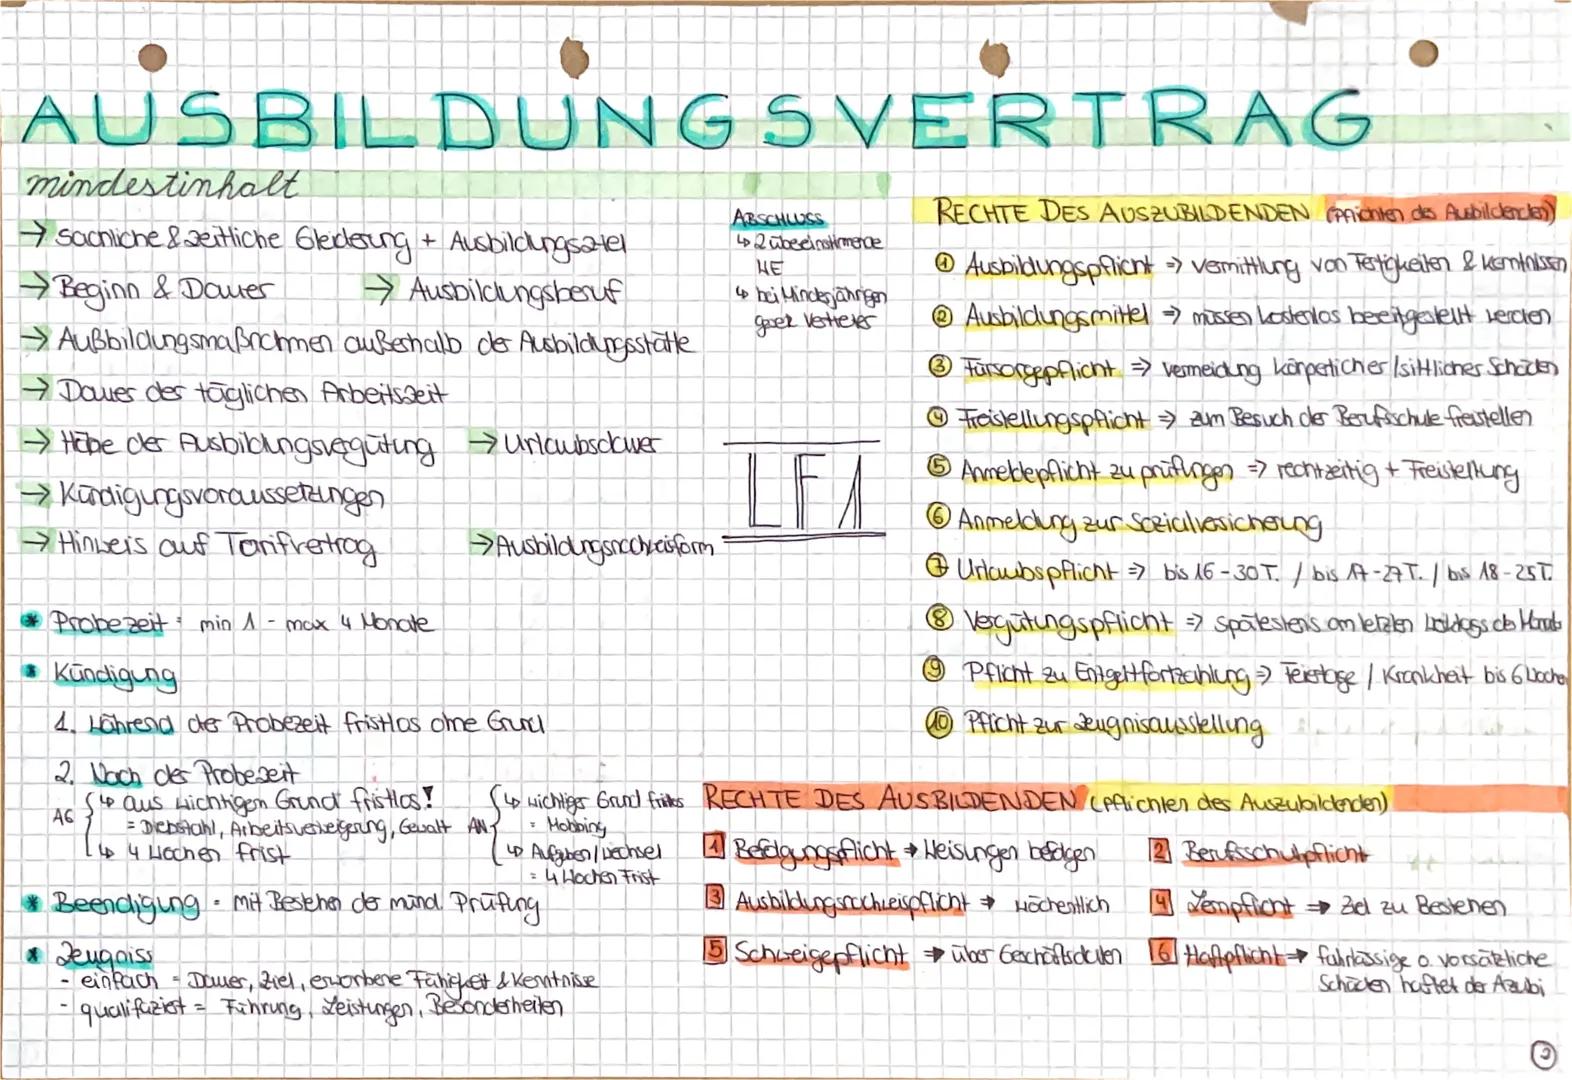 AUSBILDUNGSVERTRAG
mindestinhalt
→ sachliche & zeitliche Gliederung + Ausbildungsziel
→ Beginn & Dauer → Ausbildungsberuf
→ Außbildungsmaßnahmen außerhalb der Ausbildungsstätte
→ Dauer des täglichen Arbeitszeit
→ Höhe der Ausbildungsvergütung → Urlaubsdauer
→ Kündigungsvoraussetzungen
→ Hinweis auf Tarifvertrag → Ausbildungsnachweisform
* Probezeit: min 1 - max 4 Monate
* Kündigung
1. Während der Probezeit fristlos ohne Grund
2. Nach der Probezeit
AG
↳ aus wichtigem Grund fristlos!
= Diebstahl, Arbeitsverweigerung, Gewalt
↳ 4 Wochen frist
AN
↳ wichtiger Grund
= Mobbing
↳ Aufgaben/wechsel
= 4 Wochen Frist
* Beendigung - mit Bestehen der münd. Prüfung
* Zeugniss
- einfach = Dauer, Ziel, erworbene Fähigkeit & Kenntnisse
- qualifiziert = Führung, Leistungen, Besonderheiten
ABSCHLUSS
↳ 2 übereinstimmende
WE
↳ bei Minderjährigen
Vertreter
LF1
RECHTE DES AUSZUBILDENDEN (Pflichten des Ausbildenden)
① Ausbildungspflicht => vermittlung von Fertigkeiten & kenntnissen
② Ausbildungsmittel => müssen kostenlos bereitgestellt werden
③ Fürsorgepflicht => vermeidung körperlicher/sittlicher Schäden
④ Freistellungspflicht => zum Besuch der Berufsschule freistellen
⑤ Anmeldepflicht zu prüfungen => rechtzeitig + Freistellung
⑥ Anmeldung zur Sozialversicherung
⑦ Urlaubspflicht => bis 16 - 30 T. / bis 17 - 27 T. / bis 18 - 25 T.
⑧ Vergütungspflicht => spätestens am letzten des Monats
⑨ Pflicht zu Entgeltfortzahlung => Feiertage / Krankheit bis 6 Wochen
⑩ Pflicht zur Zeugnisausstellung
RECHTE DES AUSBILDENDEN (Pflichten des Auszubildenden)
1 Befolgungspflicht → Weisungen befolgen 2 Berufsschulpflicht
3 Ausbildungsnachweispflicht → wöchentlich 4 Lernpflicht => Ziel zu Bestehen
5 Schweigepflicht → über Geschäftsdaten 6 Haftpflicht → fahrlässige o. vorsätzliche
Schäden haftet der Azubi
②